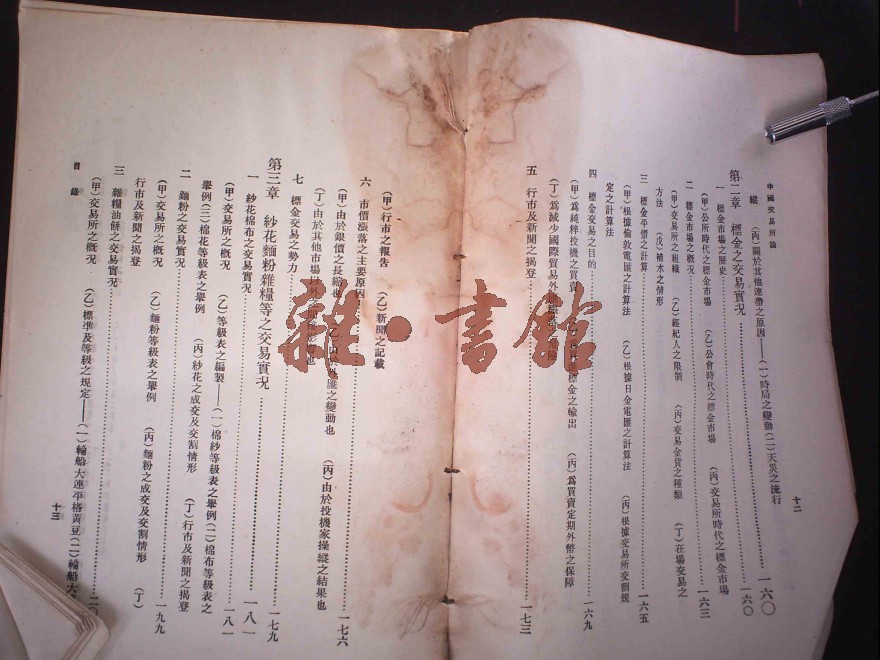 中國交易所論
十二
縱 (丙)關於其他連帶之原因——(一)時局之變動(二)天災之流行
一六〇
第二章 標金之交易實況
一六〇
一 標金市場之歷史
(甲)公所時代之標金市場 (乙)公會時代之標金市場 (丙)交易所時代之標金市場
二 標金市場之概況
一六三
(甲)交易所之組織 (乙)經紀人之限制 (丙)交易金貨之種類 (丁)在場交易之
方法 (戊)補水之情形
三 標金平價之計算
一六五
(甲)根據倫敦電匯之計算法 (乙)根據日金電匯之計算法 (丙)根據交易所交割規
定之計算法
四 標金交易之目的
一六九
(甲)爲純粹投機之買賣 標金之輸出 (丙)爲買賣定期外幣之保障
(丁)爲減少國際貿易外
五 行市及新聞之揭登
一七三
(甲)行市之報告 (乙)新聞之記載
六 市價漲落之主要原因
一七六
(甲)由於銀價之長縮也 匯之變動也 (丙)由於投機家操縱之結果也
(丁)由於其他市場以外 也
七 標金交易之勢力
一七九
第三章 紗花麵粉雜糧等之交易實況
一八一
一 紗花棉布之交易實況
一八一
(甲)交易所之概況 (乙)等級表之編製——(一)棉紗等級表之舉例(二)棉布等級表之
舉例(三)棉花等級表之舉例 (丙)紗花之成交及交割情形 (丁)行市及新聞之揭登
二 麵粉之交易實況
一九九
(甲)交易所之概況 (乙)麵粉等級表之舉例 (丙)麵粉之成交及交割情形 (丁)
行市及新聞之揭登
三 雜糧油餅之交易實況
(甲)交易所之概況 (乙)標準及等級之規定——(一)輪船大連平格黃豆(二)輪船大
目錄
十三
雜·書館